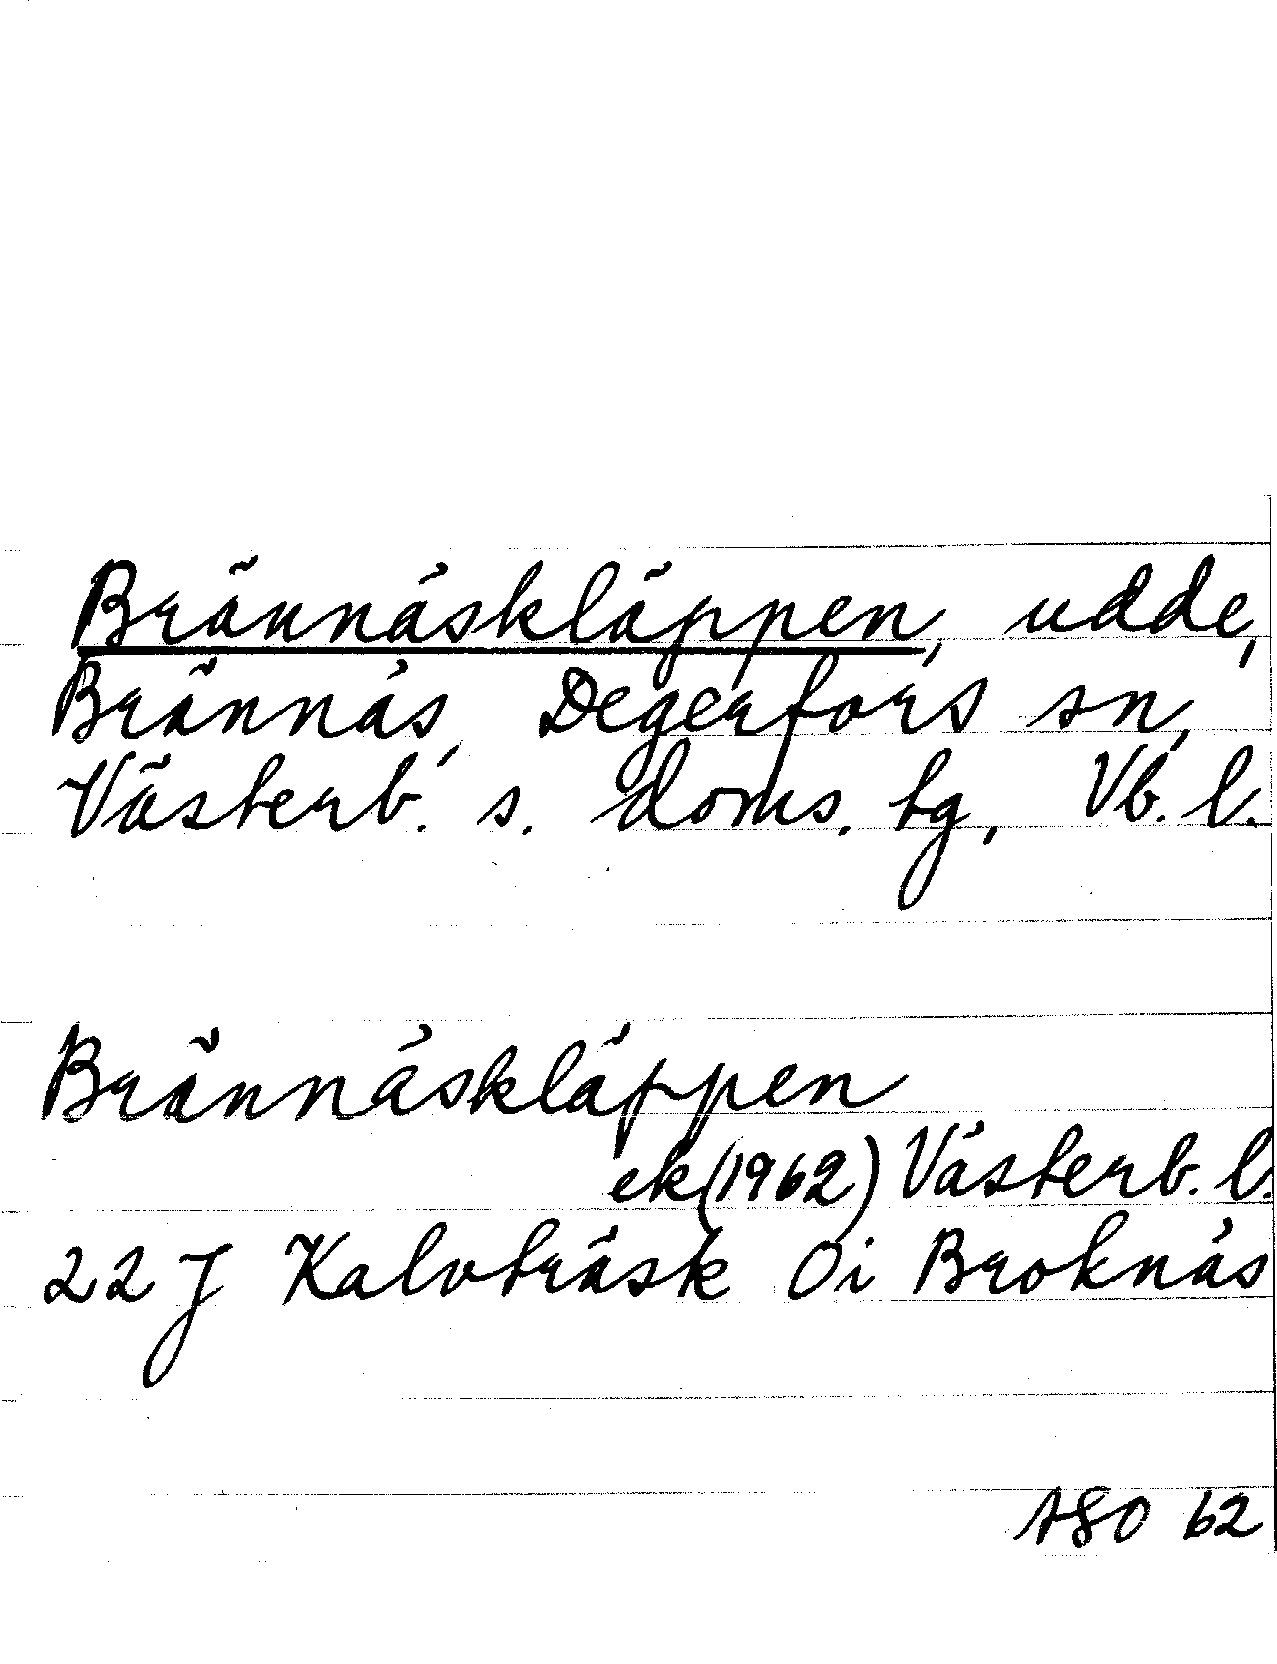 Brännäskläppen, udde,
Brännäs, Degerfors sn,
Västerb. s. doms. tg, Vb. l.
Brännäskläppen
ek (1962) Västerb. l.
22 J Kalvträsk 0i Broknäs
ASO 62